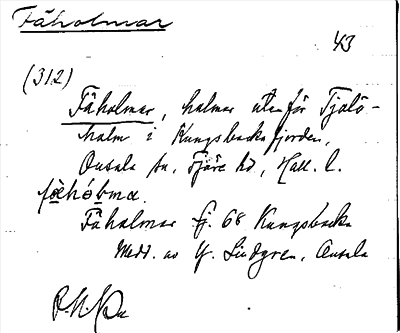 Fåholmar
43
(312)
Fåholmar, holmar utanför Tjolö-
holm i Kungsbackafjorden,
Onsala sn, Fjäre hd, Hall. l.
Fåholmar Ej. 68 Kungsbacka
Medd. av Y. Lindgren, Onsala